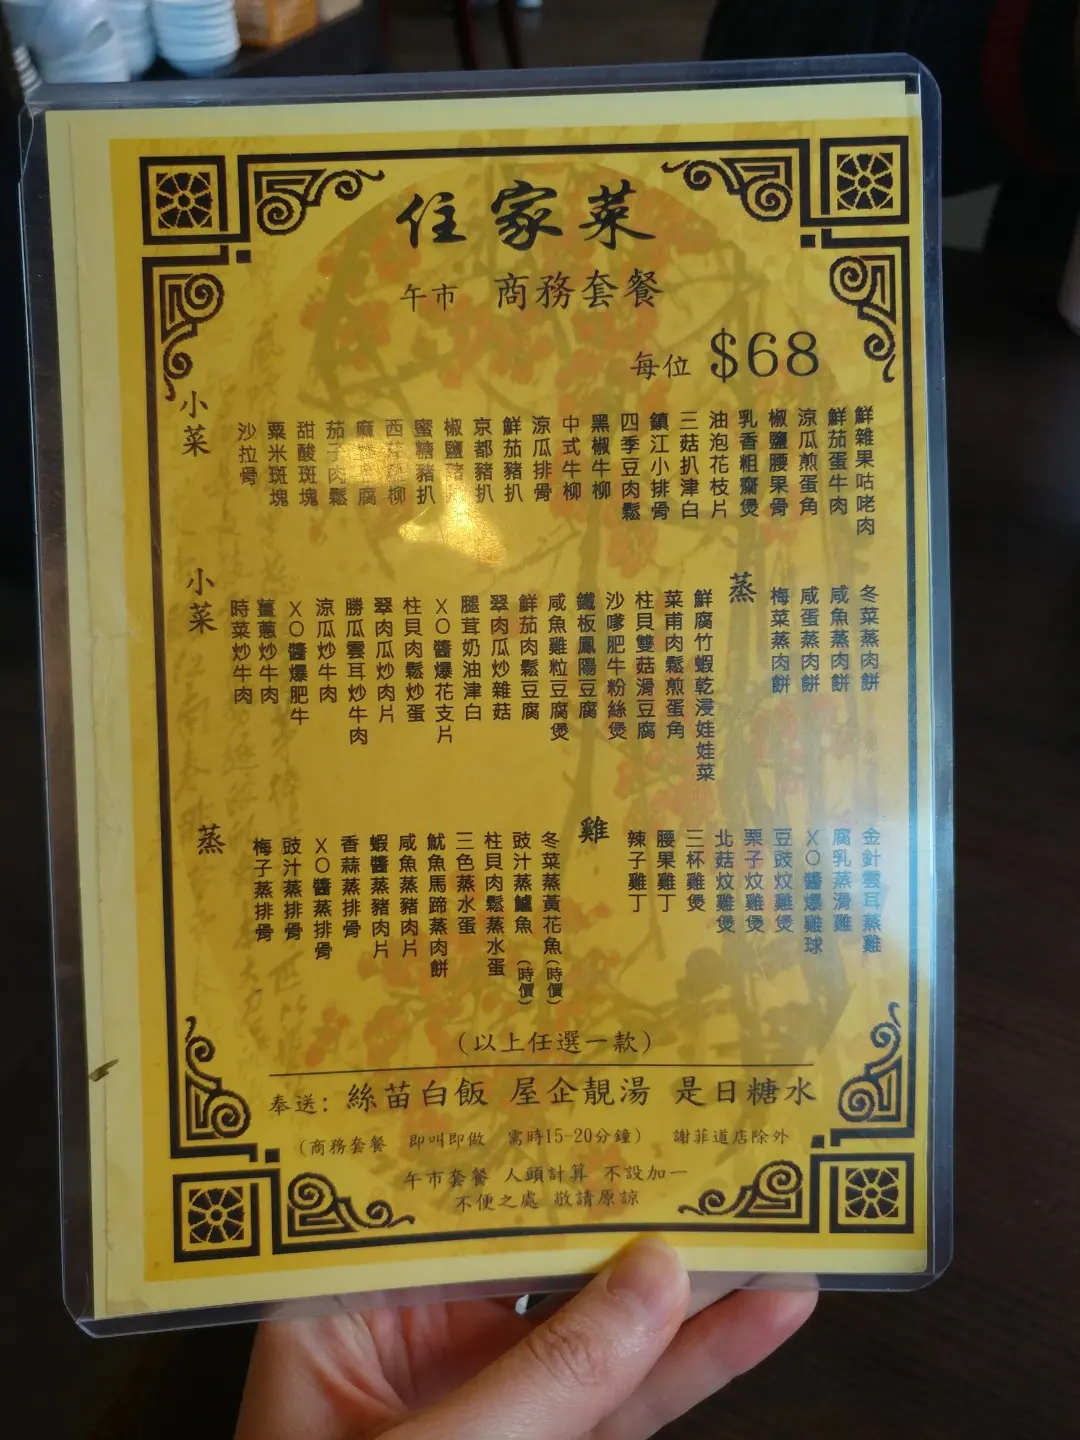 住家菜
午市 商務套餐
每位 $68
小菜
沙拉骨
粟米斑塊
甜酸斑塊
茄子肉鬆
麻婆豆腐
西柳
蜜糖豬扒
椒鹽豬扒
京都豬扒
鮮茄豬扒
涼瓜排骨
中式牛柳
黑椒牛柳
四季豆肉鬆
鎮江小排骨
三菇扒津白
油泡花枝片
乳香粗齋煲
椒鹽腰果骨
涼瓜煎蛋角
鮮茄蛋牛肉
鮮雜果咕咾肉
小菜
時菜炒牛肉
薑蔥炒牛肉
XO醬爆肥牛
涼瓜炒牛肉
勝瓜雲耳炒牛肉
翠肉瓜炒肉片
柱貝肉鬆炒蛋
XO醬爆花支片
腿茸奶油津白
翠肉瓜炒雜菇
鮮茄肉鬆豆腐
咸魚雞粒豆腐煲
鐵板鳳陽豆腐
沙嗲肥牛粉絲煲
柱貝雙菇滑豆腐
菜甫肉鬆煎蛋角
鮮腐竹蝦乾浸娃娃菜
蒸
梅菜蒸肉餅
咸蛋蒸肉餅
咸魚蒸肉餅
冬菜蒸肉餅
蒸
梅子蒸排骨
豉汁蒸排骨
XO醬蒸排骨
香蒜蒸排骨
蝦醬蒸豬肉片
咸魚蒸豬肉片
魷魚馬蹄蒸肉餅
三色蒸水蛋
柱貝肉鬆蒸水蛋
豉汁蒸鱸魚(時價)
冬菜蒸黃花魚(時價)
雞
辣子雞丁
腰果雞丁
三杯雞煲
北菇炆雞煲
栗子炆雞煲
豆豉炆雞煲
XO醬爆雞球
腐乳蒸滑雞
金針雲耳蒸雞
(以上任選一款)
奉送: 絲苗白飯 屋企靚湯 是日糖水
(商務套餐 即叫即做 需時15-20分鐘) 謝菲道店除外
午市套餐 人頭計算 不設加一
不便之處 敬請原諒